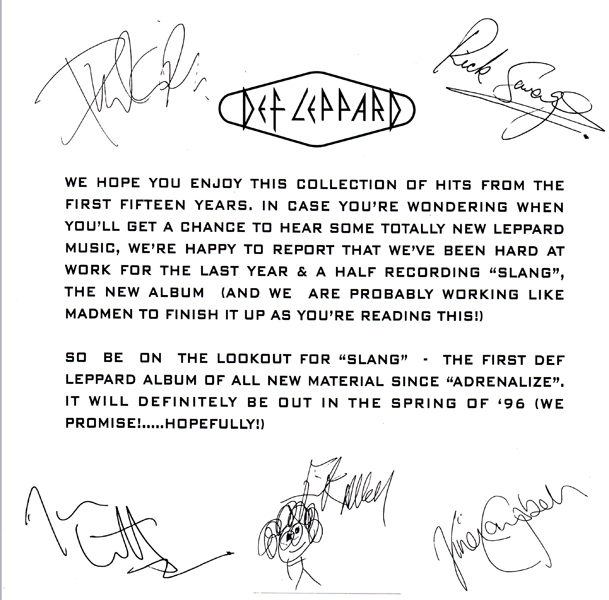 Rick Savage
DEF LEPPARD
WE HOPE YOU ENJOY THIS COLLECTION OF HITS FROM THE
FIRST FIFTEEN YEARS. IN CASE YOU'RE WONDERING WHEN
YOU'LL GET A CHANCE TO HEAR SOME TOTALLY NEW LEPPARD
MUSIC, WE'RE HAPPY TO REPORT THAT WE'VE BEEN HARD AT
WORK FOR THE LAST YEAR & A HALF RECORDING "SLANG",
THE NEW ALBUM (AND WE ARE PROBABLY WORKING LIKE
MADMEN TO FINISH IT UP AS YOU'RE READING THIS!)
SO BE ON THE LOOKOUT FOR "SLANG" - THE FIRST DEF
LEPPARD ALBUM OF ALL NEW MATERIAL SINCE "ADRENALIZE".
IT WILL DEFINITELY BE OUT IN THE SPRING OF '96 (WE
PROMISE!.....HOPEFULLY!)
Campbell